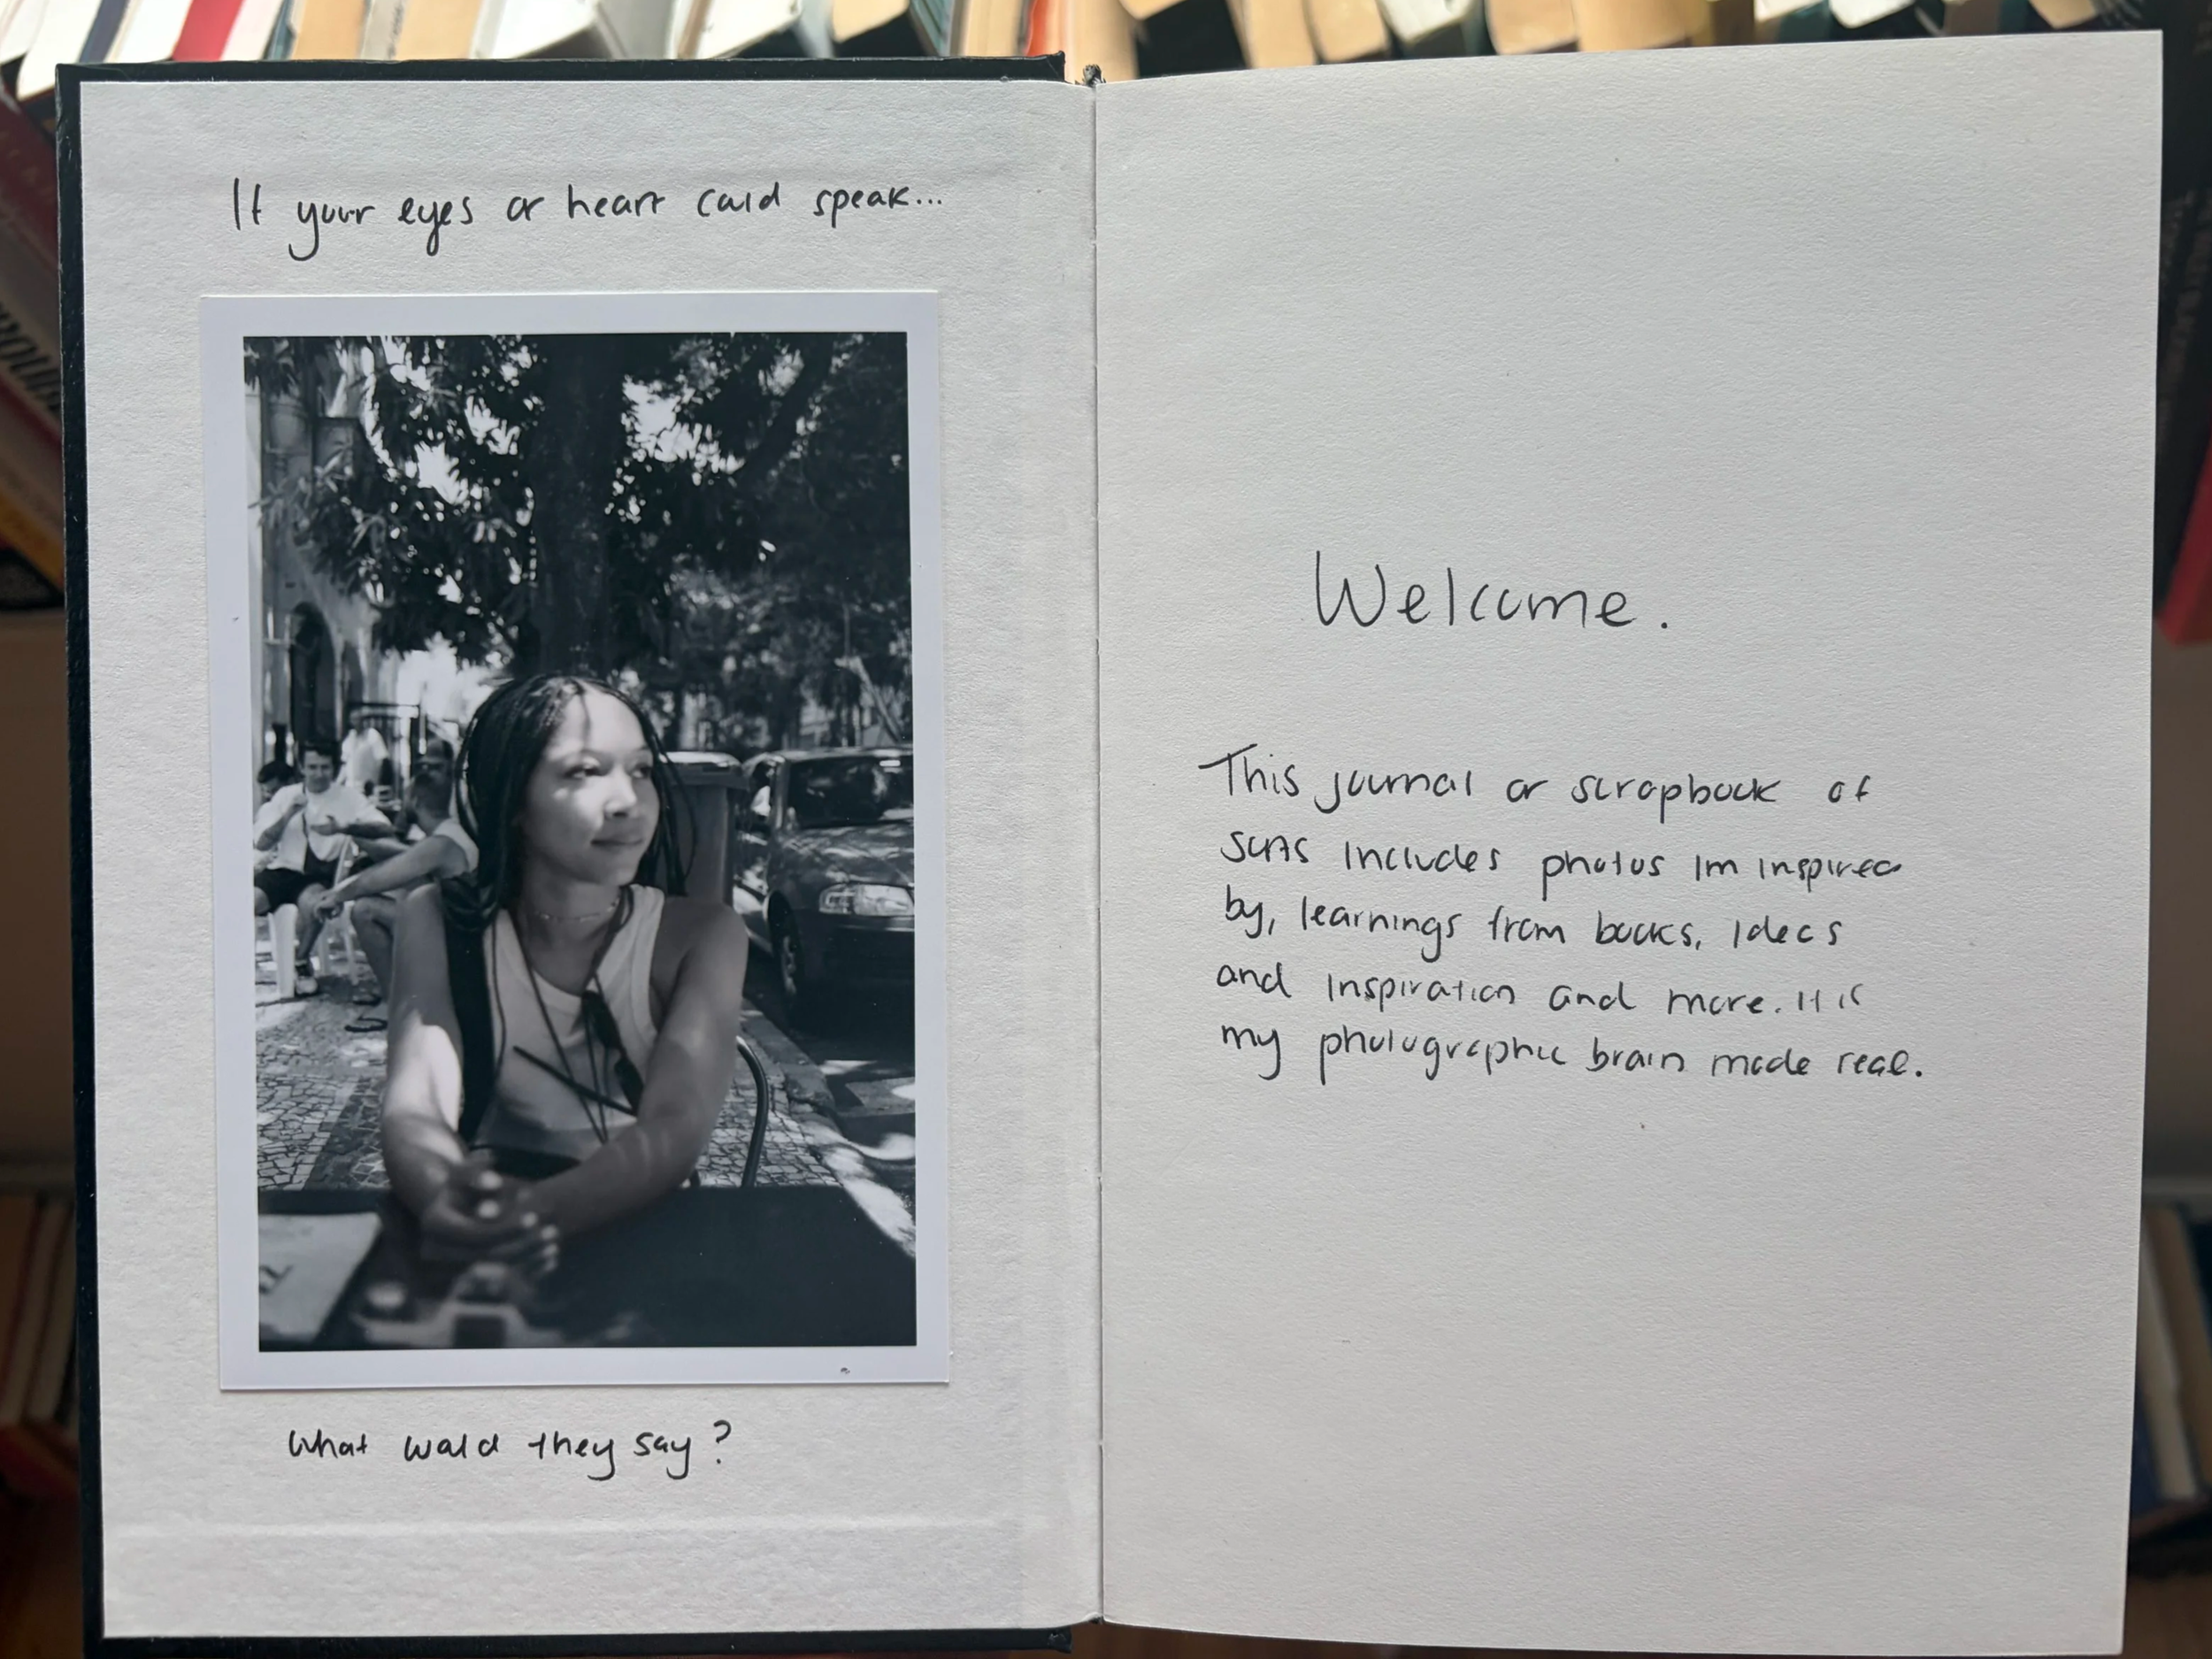 If your eyes or heart could speak...
What would they say?
Welcome.
This journal or scrapbook of
sorts includes photos Im inspired
by, learnings from books, ideas
and inspiration and more. It is
my photographic brain made real.